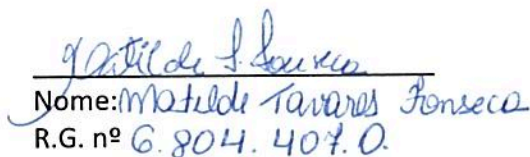 Matilde T. Fonseca
Nome: Matilde Tavares Fonseca
R.G. nº 6.804.407.0.